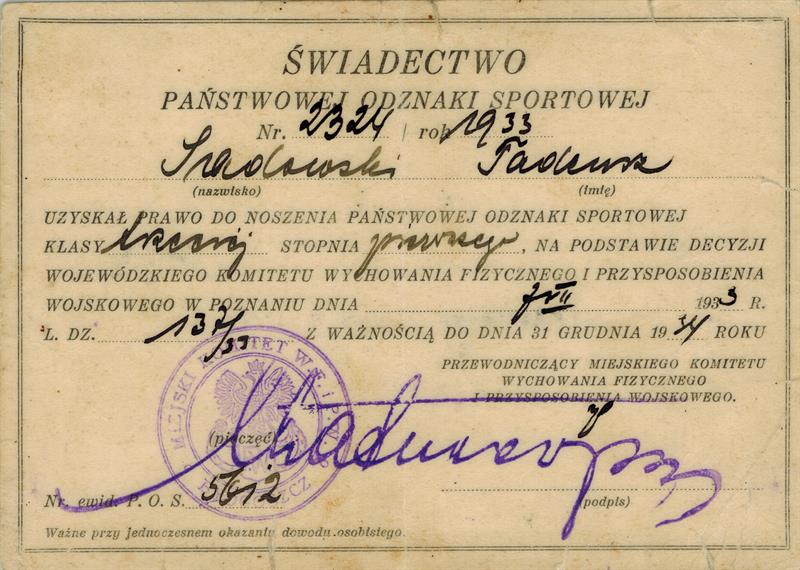 ŚWIADECTWO
PAŃSTWOWEJ ODZNAKI SPORTOWEJ
Nr. 2324 / rok 1933
Sadowski Tadeusz
(nazwisko) (imię)
UZYSKAŁ PRAWO DO NOSZENIA PAŃSTWOWEJ ODZNAKI SPORTOWEJ
KLASY trzeciej STOPNIA pierwszego, NA PODSTAWIE DECYZJI
WOJEWÓDZKIEGO KOMITETU WYCHOWANIA FIZYCZNEGO I PRZYSPOSOBIENIA
WOJSKOWEGO W POZNANIU DNIA 7 VII 1933 R.
L. DZ. 137/33 Z WAŻNOŚCIĄ DO DNIA 31 GRUDNIA 1934 ROKU
PRZEWODNICZĄCY MIEJSKIEGO KOMITETU
WYCHOWANIA FIZYCZNEGO
I PRZYSPOSOBIENIA WOJSKOWEGO.
MIEJSKI KOMITET W.F. i P.W.
(pieczęć)
Nr. ewid. P. O. S. 5612
(podpis)
Ważne przy jednoczesnem okazaniu dowodu osobistego.